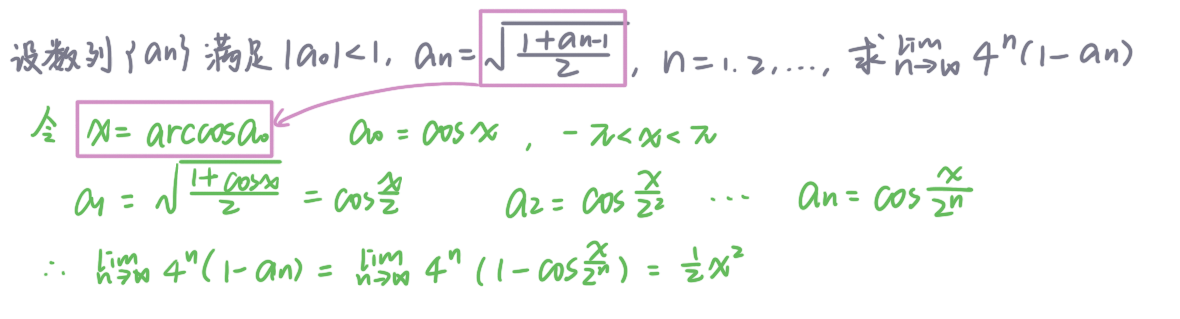 设数列{an}满足|a₀|<1, an=√((1+an-1)/2), n=1.2,..., 求lim n→∞ 4ⁿ(1-an)
令 x=arccosa₀ a₀=cosx, -π<x<π
a₁=√((1+cosx)/2)=cos x/2 a₂=cos x/2² ... an=cos x/2ⁿ
∴ lim n→∞ 4ⁿ(1-an)=lim n→∞ 4ⁿ(1-cos x/2ⁿ)=1/2 x²